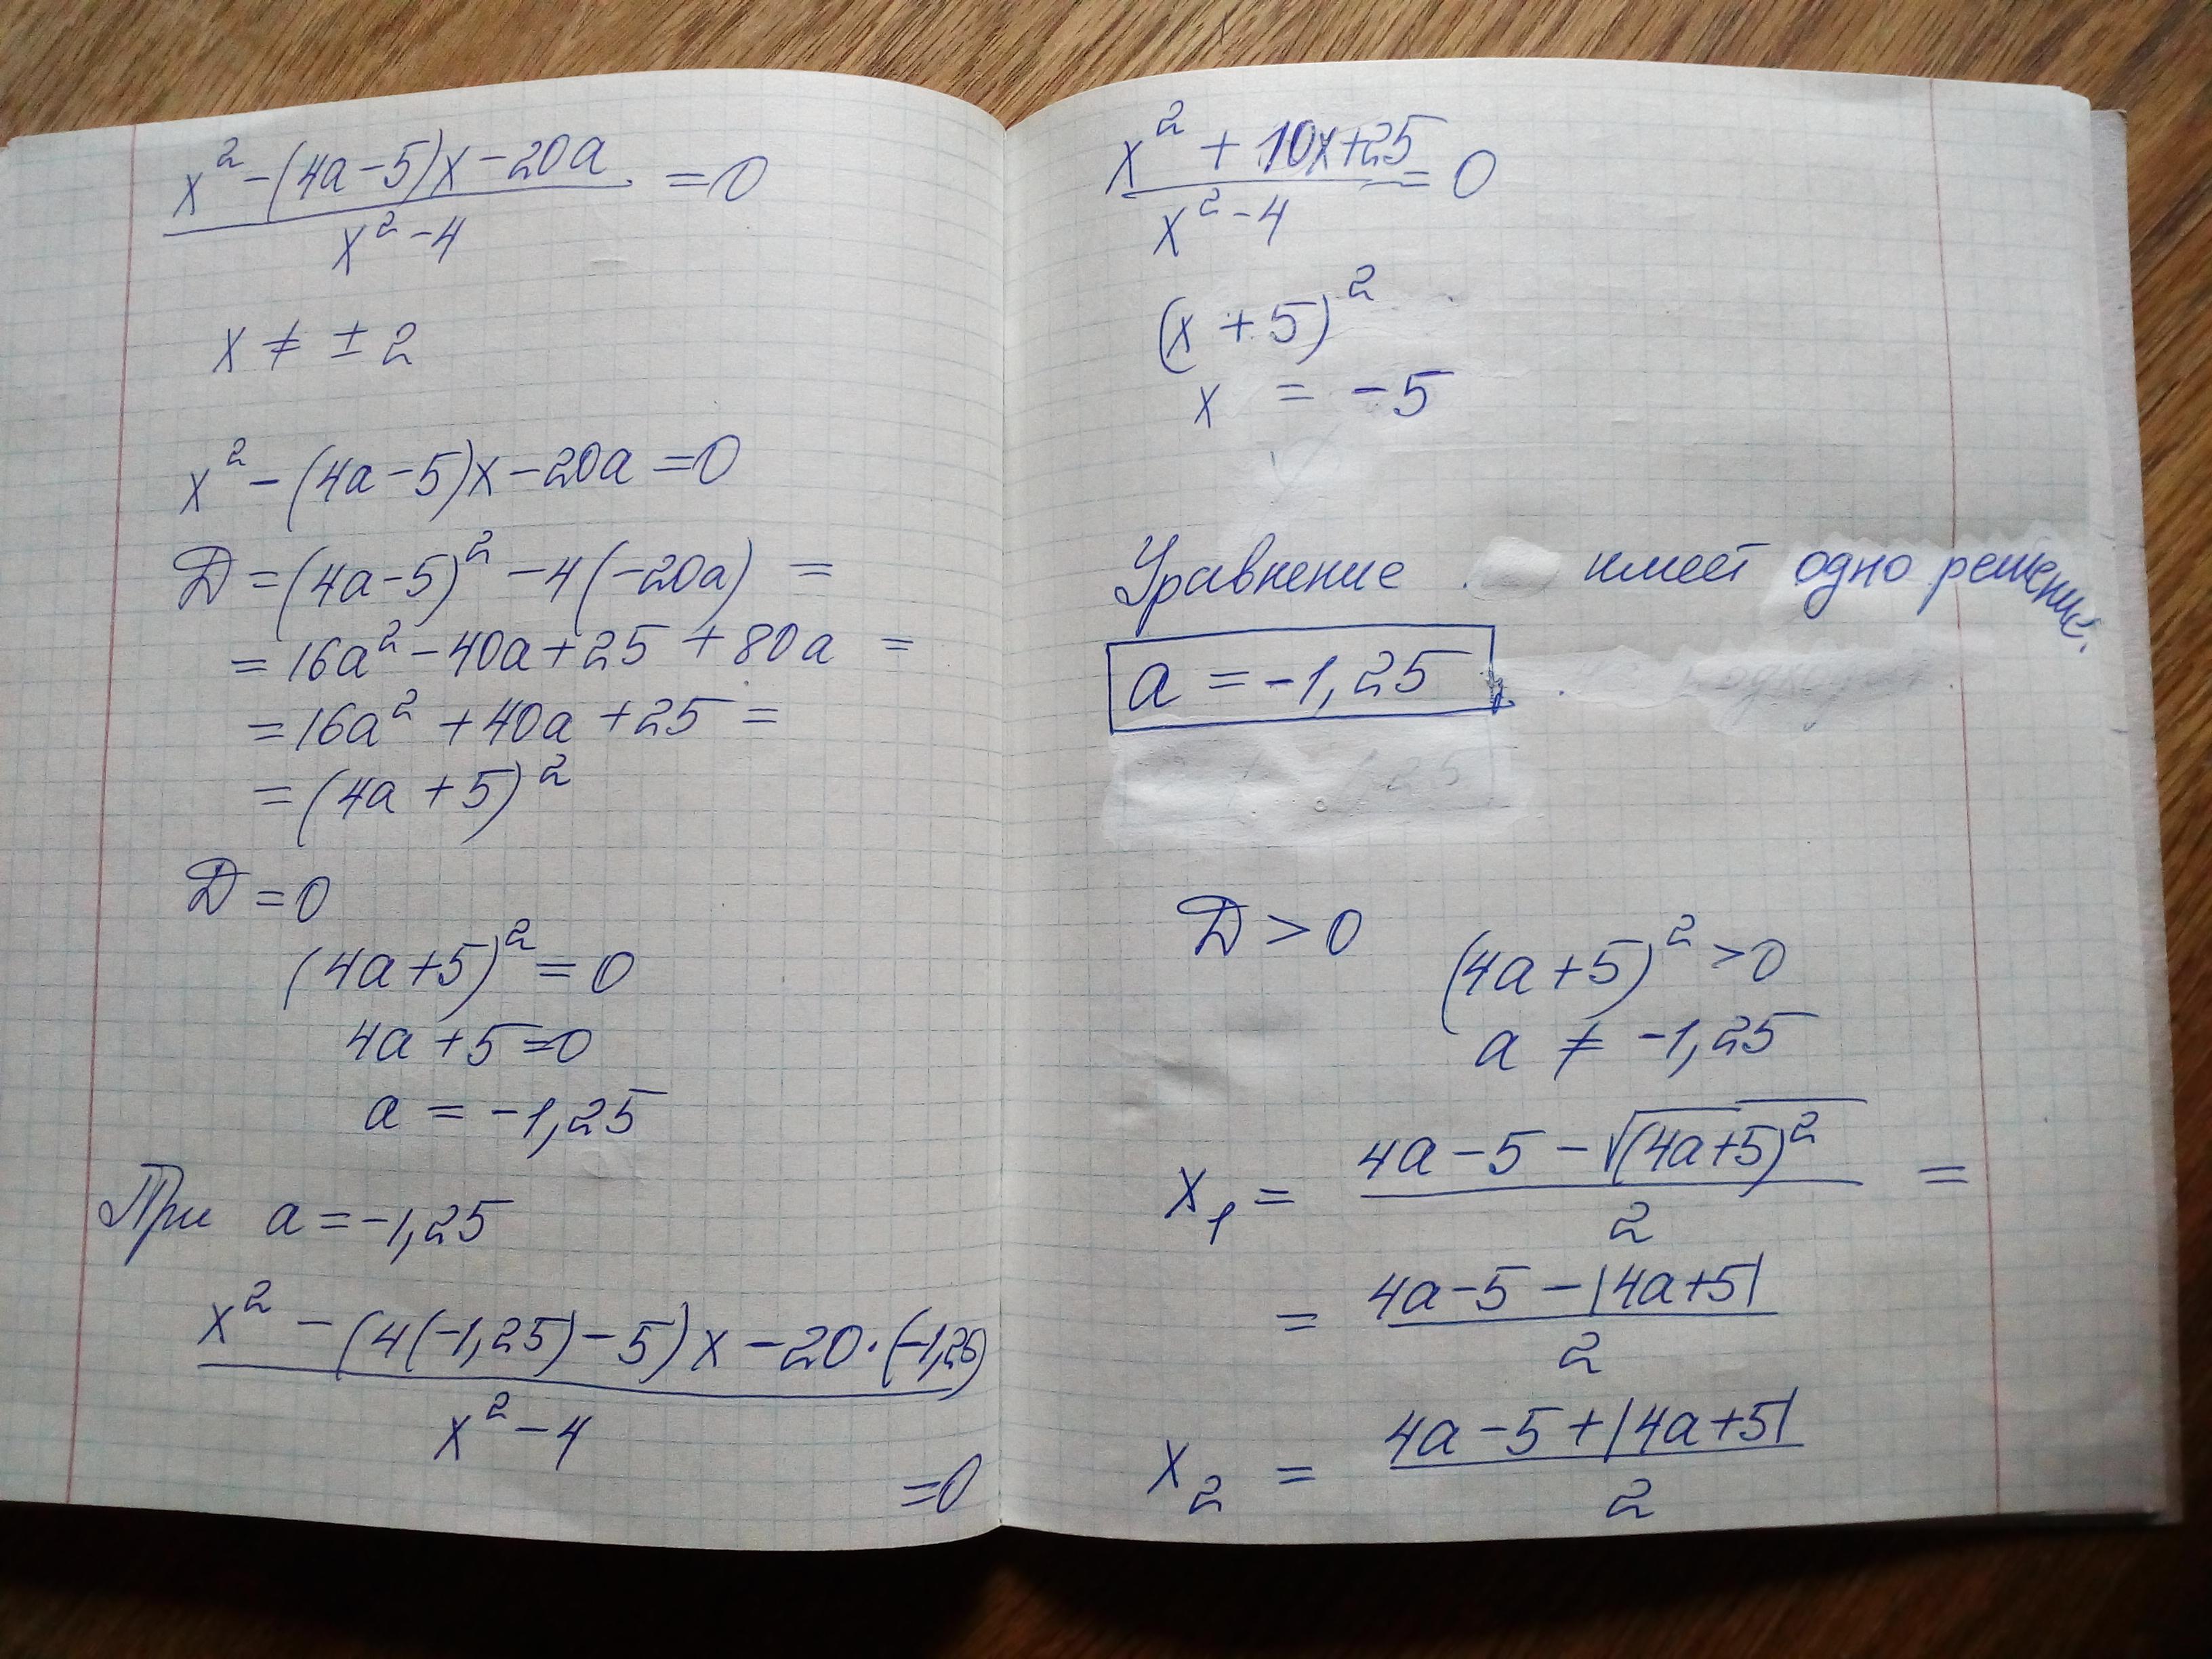 x² - (4a - 5)x - 20a
x² - 4
= 0
x ≠ ± 2
x² - (4a - 5)x - 20a = 0
D = (4a - 5)² - 4(-20a) =
= 16a² - 40a + 25 + 80a =
= 16a² + 40a + 25 =
= (4a + 5)²
D = 0
(4a + 5)² = 0
4a + 5 = 0
a = -1,25
При a = -1,25
x² - (4(-1,25) - 5)x - 20·(-1,25)
x² - 4
= 0
x² + 10x + 25
x² - 4
= 0
(x + 5)²
x = -5
Уравнение имеет одно решение.
a = -1,25
D > 0
(4a + 5)² > 0
a ≠ -1,25
x₁ = 4a - 5 - √(4a + 5)²
2
=
= 4a - 5 - |4a + 5|
2
x₂ = 4a - 5 + |4a + 5|
2